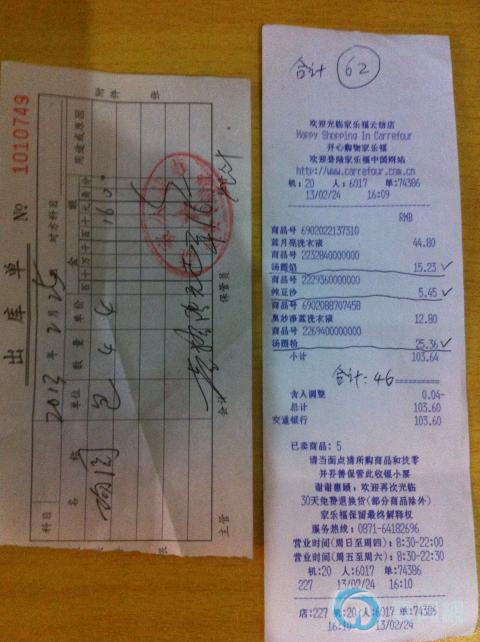 出库单
№ 1010749
附件 张
2013年2月25
对方科目
科目
名称
单位
数量
单价
金额
百十万千百十元角分
用途或原因
包
4
4
1600
主管
会计
保管员
合计 62
欢迎光临家乐福云纺店
Happy Shopping In Carrefour
开心购物家乐福
欢迎登陆家乐福中国网站
http://www.carrefour.com.cn
机:20 人:6017 单:74386
13/02/24 16:09
RMB
商品号 6902022137310
蓝月亮洗衣液 44.80
商品号 2232840000000
汤圆馅 15.23 ✓
商品号 2229360000000
纯豆沙 5.45 ✓
商品号 6902088707458
奥妙净蓝洗衣液 12.80
商品号 2269400000000
汤圆粉 25.36 ✓
小计 103.64
合计:46
舍入调整 0.04-
总计 103.60
交通银行 103.60
已卖商品: 5
请当面点清所购商品和找零
并妥善保管此收银小票
谢谢惠顾，欢迎再次光临
30天免费退换货(部分商品除外)
家乐福保留最终解释权
服务热线：0871-64182696
营业时间(周日至周四)：8:30-22:00
营业时间(周五至周六)：8:30-22:30
机:20 人:6017 单:74386
227 13/02/24 16:10
店:227 机:20 人:6017 单:74386
16:10 13/02/24